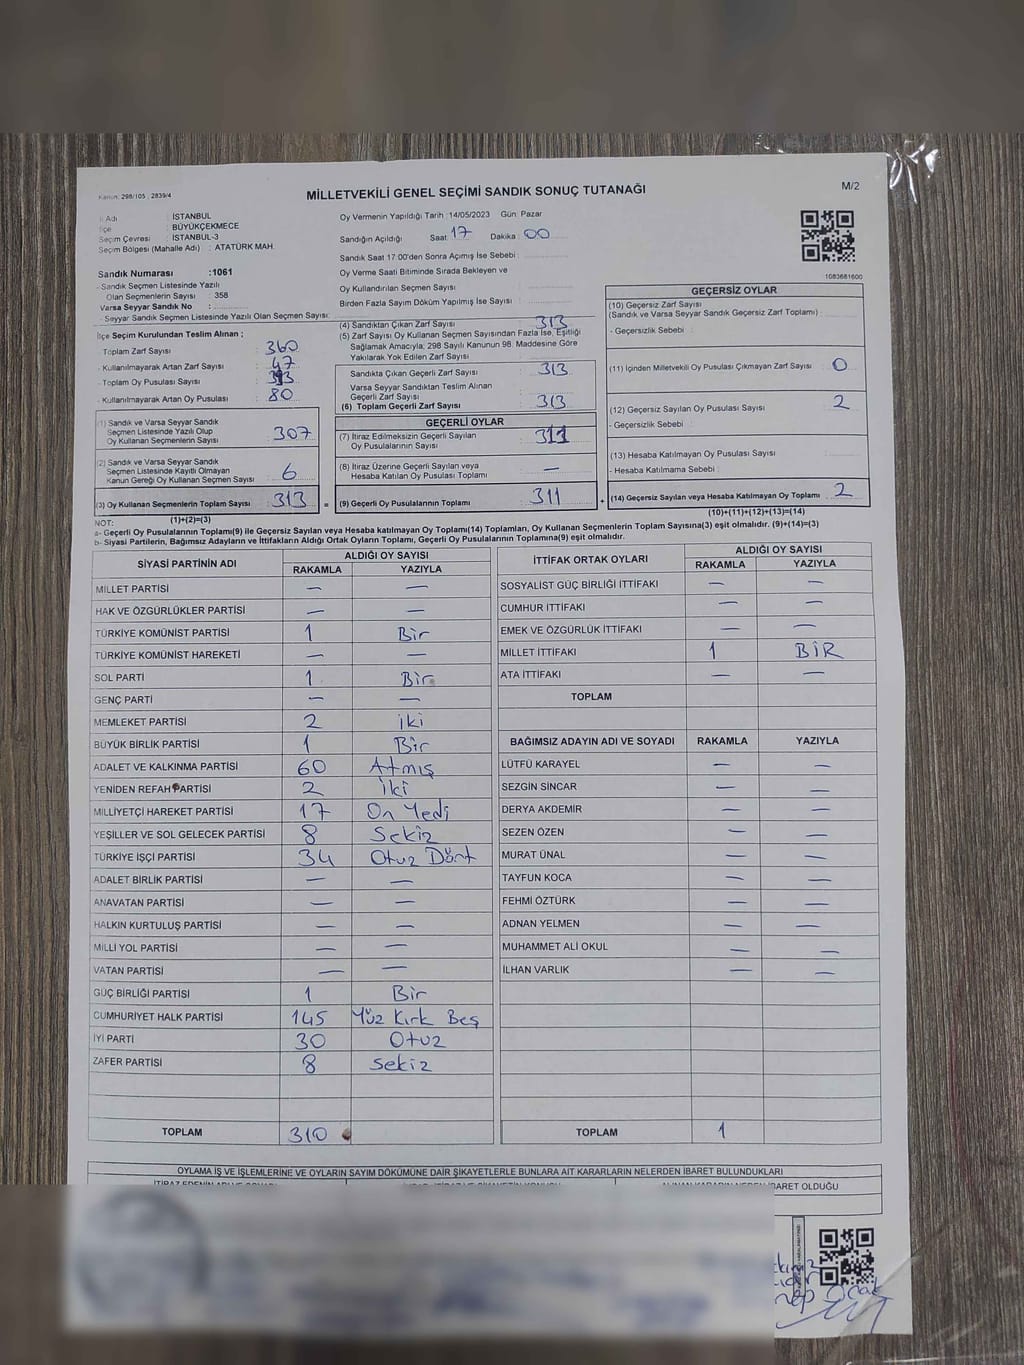 Kanun: 298/105 : 2839/4
MİLLETVEKİLİ GENEL SEÇİMİ SANDIK SONUÇ TUTANAĞI
M/2
İl Adı : İSTANBUL
İlçe : BÜYÜKÇEKMECE
Seçim Çevresi : İSTANBUL-3
Seçim Bölgesi (Mahalle Adı) : ATATÜRK MAH.
Sandık Numarası :1061
- Sandık Seçmen Listesinde Yazılı
Olan Seçmenlerin Sayısı : 358
Varsa Seyyar Sandık No :
- Seyyar Sandık Seçmen Listesinde Yazılı Olan Seçmen Sayısı:
Oy Vermenin Yapıldığı Tarih :14/05/2023 Gün: Pazar
Sandığın Açıldığı Saat: 17 Dakika: 00
Sandık Saat 17:00'den Sonra Açımış İse Sebebi :
Oy Verme Saati Bitiminde Sırada Bekleyen ve
Oy Kullandırılan Seçmen Sayısı :
Birden Fazla Sayım Döküm Yapılmış İse Sayısı :
1083681600
İlçe Seçim Kurulundan Teslim Alınan ;
- Toplam Zarf Sayısı : 360
- Kullanılmayarak Artan Zarf Sayısı : 47
- Toplam Oy Pusulası Sayısı : 393
- Kullanılmayarak Artan Oy Pusulası : 80
(1) Sandık ve Varsa Seyyar Sandık
Seçmen Listesinde Yazılı Olup
Oy Kullanan Seçmenlerin Sayısı : 307
(2) Sandık ve Varsa Seyyar Sandık
Seçmen Listesinde Kayıtlı Olmayan
Kanun Gereği Oy Kullanan Seçmen Sayısı : 6
(3) Oy Kullanan Seçmenlerin Toplam Sayısı : 313
(1)+(2)=(3)
(4) Sandıktan Çıkan Zarf Sayısı : 313
(5) Zarf Sayısı Oy Kullanan Seçmen Sayısından Fazla İse, Eşitliği
Sağlamak Amacıyla; 298 Sayılı Kanunun 98. Maddesine Göre
Yakılarak Yok Edilen Zarf Sayısı :
Sandıkta Çıkan Geçerli Zarf Sayısı : 313
Varsa Seyyar Sandıktan Teslim Alınan
Geçerli Zarf Sayısı :
(6) Toplam Geçerli Zarf Sayısı : 313
GEÇERLİ OYLAR
(7) İtiraz Edilmeksizin Geçerli Sayılan
Oy Pusulalarının Sayısı : 311
(8) İtiraz Üzerine Geçerli Sayılan veya
Hesaba Katılan Oy Pusulası Sayısı : —
= (9) Geçerli Oy Pusulalarının Toplamı : 311
GEÇERSİZ OYLAR
(10) Geçersiz Zarf Sayısı
(Sandık ve Varsa Seyyar Sandık Geçersiz Zarf Toplamı) :
- Geçersizlik Sebebi :
(11) İçinden Milletvekili Oy Pusulası Çıkmayan Zarf Sayısı : 0
(12) Geçersiz Sayılan Oy Pusulası Sayısı : 2
- Geçersizlik Sebebi :
(13) Hesaba Katılmayan Oy Pusulası Sayısı :
- Hesaba Katılmama Sebebi :
+ (14) Geçersiz Sayılan veya Hesaba Katılmayan Oy Toplamı : 2
(10)+(11)+(12)+(13)=(14)
NOT:
a- Geçerli Oy Pusulalarının Toplamı(9) ile Geçersiz Sayılan veya Hesaba katılmayan Oy Toplamı(14) Toplamları, Oy Kullanan Seçmenlerin Toplam Sayısına(3) eşit olmalıdır. (9)+(14)=(3)
b- Siyasi Partilerin, Bağımsız Adayların ve İttifakların Aldığı Ortak Oyların Toplamı, Geçerli Oy Pusulalarının Toplamına(9) eşit olmalıdır.
SİYASİ PARTİNİN ADI ALDIĞI OY SAYISI
RAKAMLA YAZIYLA
MİLLET PARTİSİ — —
HAK VE ÖZGÜRLÜKLER PARTİSİ — —
TÜRKİYE KOMÜNİST PARTİSİ 1 Bir
TÜRKİYE KOMÜNİST HAREKETİ — —
SOL PARTİ 1 Bir
GENÇ PARTİ — —
MEMLEKET PARTİSİ 2 iki
BÜYÜK BİRLİK PARTİSİ 1 Bir
ADALET VE KALKINMA PARTİSİ 60 Atmış
YENİDEN REFAH PARTİSİ 2 iki
MİLLİYETÇİ HAREKET PARTİSİ 17 On Yedi
YEŞİLLER VE SOL GELECEK PARTİSİ 8 Sekiz
TÜRKİYE İŞÇİ PARTİSİ 34 Otuz Dört
ADALET BİRLİK PARTİSİ — —
ANAVATAN PARTİSİ — —
HALKIN KURTULUŞ PARTİSİ — —
MİLLİ YOL PARTİSİ — —
VATAN PARTİSİ — —
GÜÇ BİRLİĞİ PARTİSİ 1 Bir
CUMHURİYET HALK PARTİSİ 145 Yüz Kırk Beş
İYİ PARTİ 30 Otuz
ZAFER PARTİSİ 8 Sekiz
TOPLAM 310
İTTİFAK ORTAK OYLARI ALDIĞI OY SAYISI
RAKAMLA YAZIYLA
SOSYALİST GÜÇ BİRLİĞİ İTTİFAKI — —
CUMHUR İTTİFAKI — —
EMEK VE ÖZGÜRLÜK İTTİFAKI — —
MİLLET İTTİFAKI 1 BİR
ATA İTTİFAKI — —
TOPLAM
BAĞIMSIZ ADAYIN ADI VE SOYADI RAKAMLA YAZIYLA
LÜTFÜ KARAYEL — —
SEZGİN SİNCAR — —
DERYA AKDEMİR — —
SEZEN ÖZEN — —
MURAT ÜNAL — —
TAYFUN KOCA — —
FEHMİ ÖZTÜRK — —
ADNAN YELMEN — —
MUHAMMET ALİ OKUL — —
İLHAN VARLIK — —
TOPLAM 1
OYLAMA İŞ VE İŞLEMLERİNE VE OYLARIN SAYIM DÖKÜMÜNE DAİR ŞİKAYETLERLE BUNLARA AİT KARARLARIN NELERDEN İBARET BULUNDUKLARI
İBARET OLDUĞU